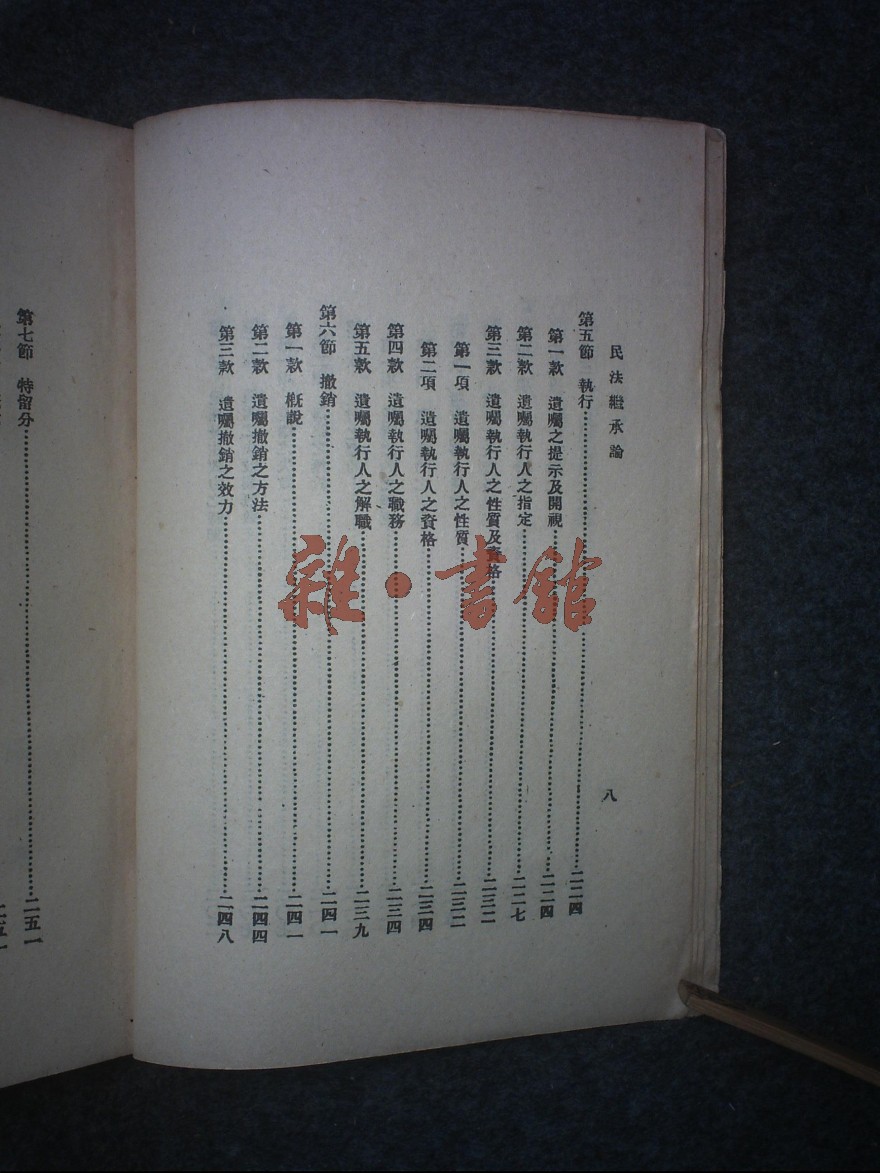 民法繼承論
八
第五節 執行……二二四
第一款 遺囑之提示及開視……二二四
第二款 遺囑執行人之指定……二二七
第三款 遺囑執行人之性質及資格……二三二
第一項 遺囑執行人之性質……二三二
第二項 遺囑執行人之資格……二三四
第四款 遺囑執行人之職務……二三四
第五款 遺囑執行人之解職……二三九
第六節 撤銷……二四一
第一款 概說……二四一
第二款 遺囑撤銷之方法……二四四
第三款 遺囑撤銷之效力……二四八
第七節 特留分……二五一
二五一
雜·書館